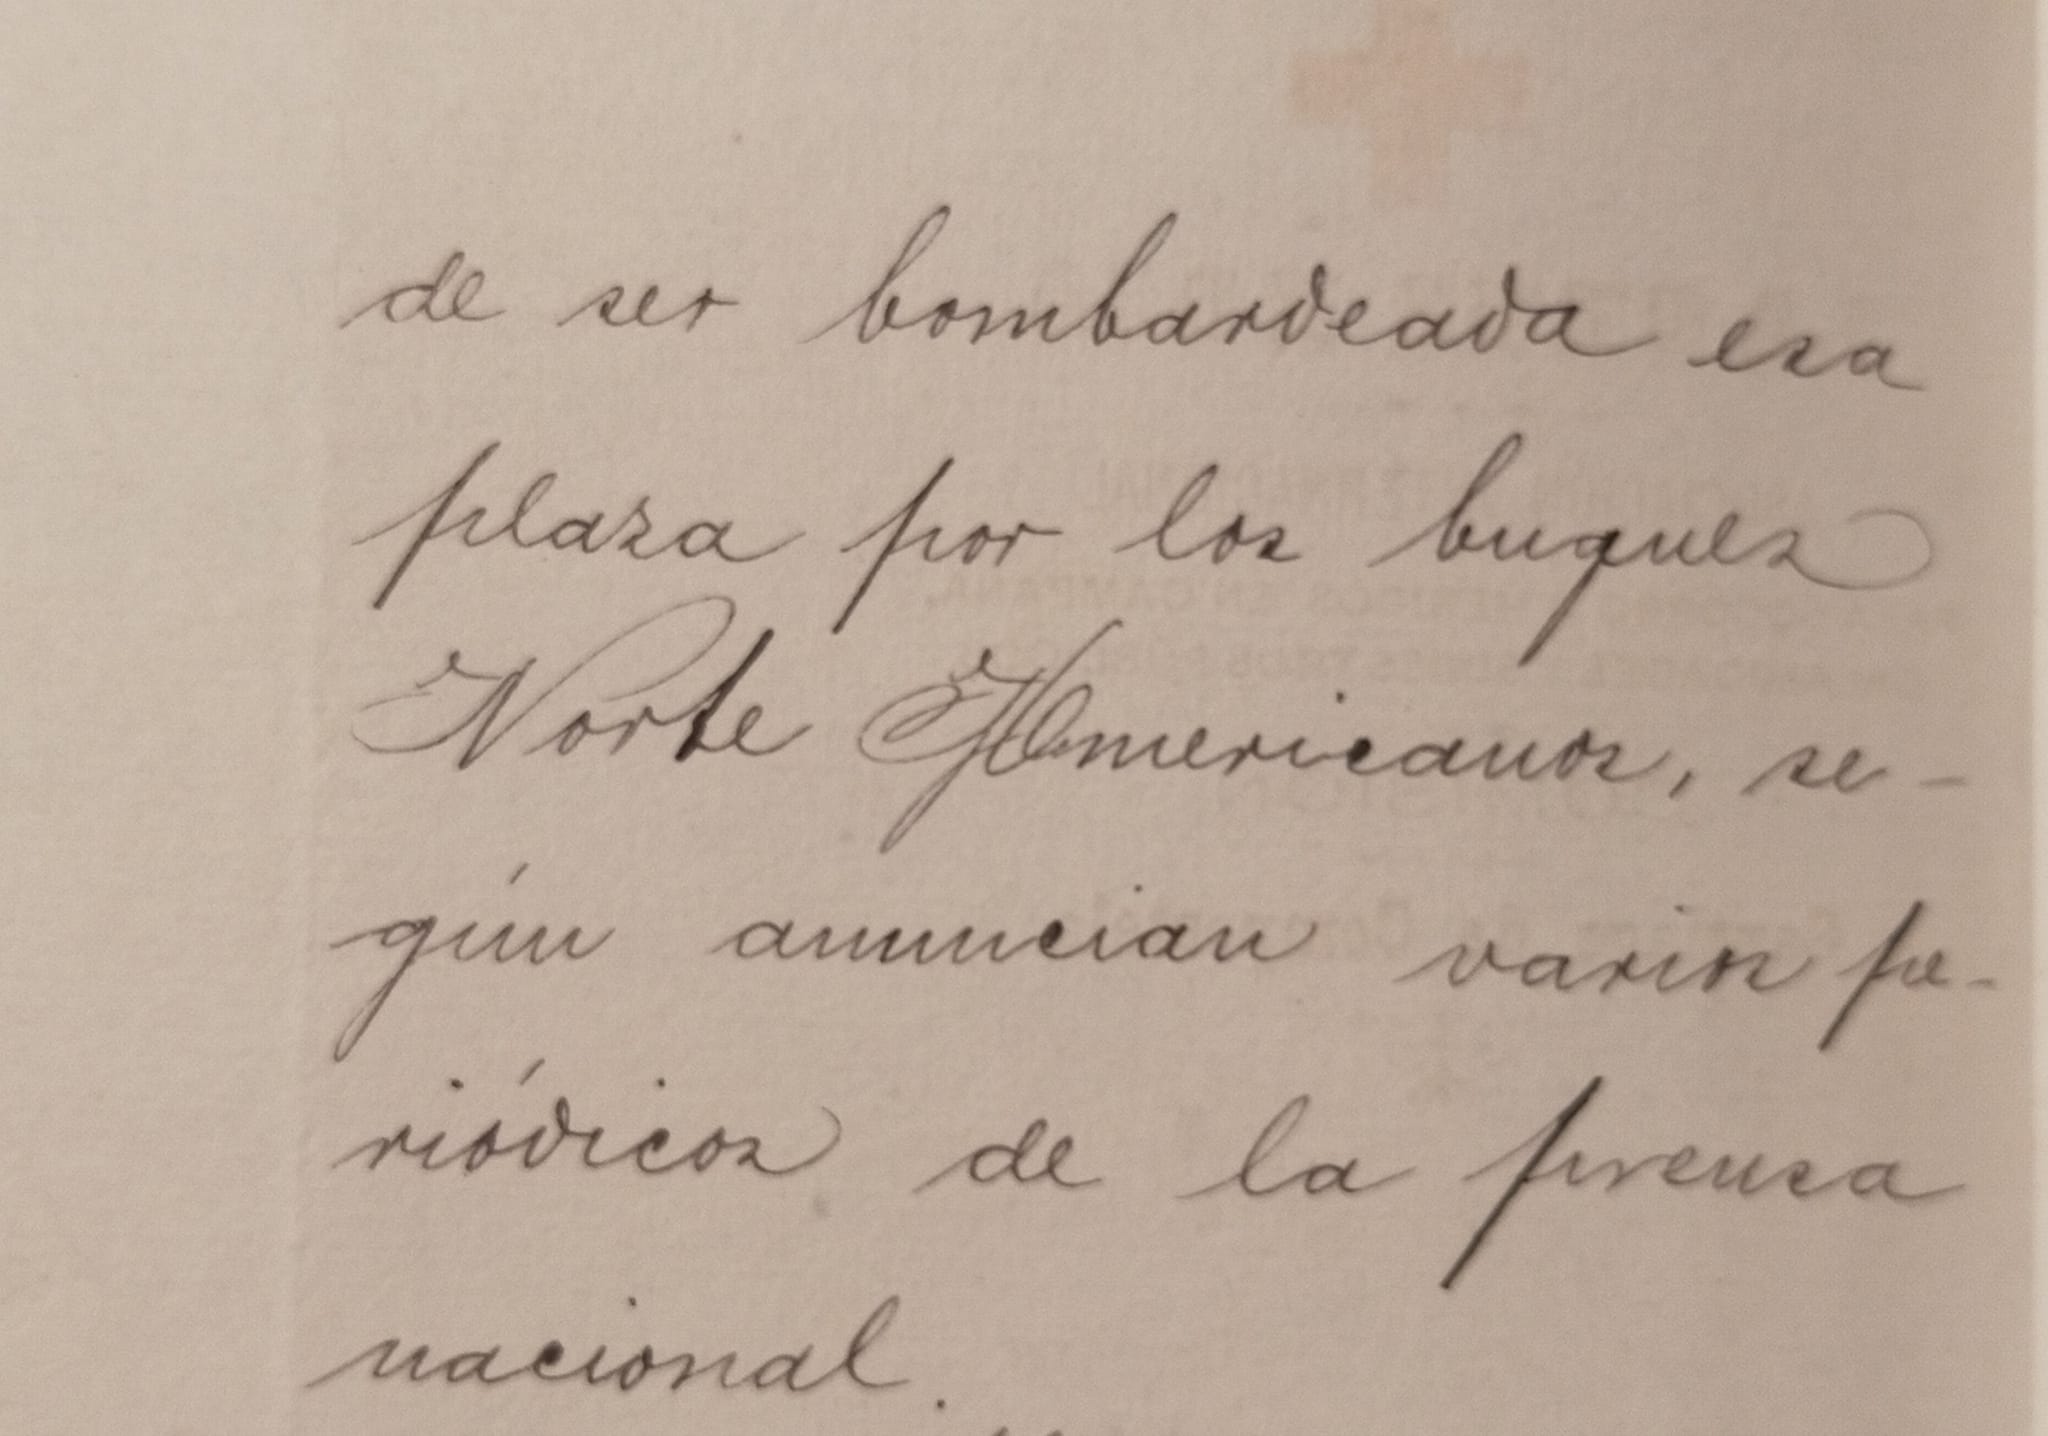 de ser bombardeada esa
plaza por los buques
Norte Americanos, se-
gún anuncian varios pe-
riódicos de la prensa
nacional.